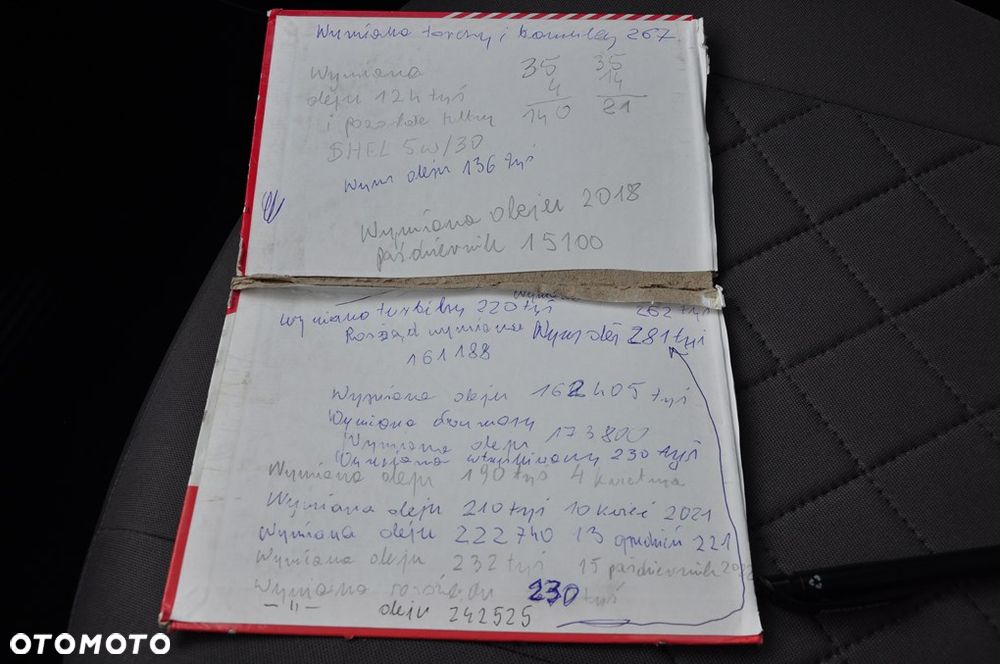 Wymiana tarczy i 267
Wymiana 35 35
oleju 124 tyś 4 14
i pozostałe filtry 140 21
SHEL 5W/30
Wym oleju 136 tyś
Wymiana oleju 2018
październik 15100
Wymiana turbiny 220 tyś 262 tyś
Rozrząd wymiana Wym olej 281 tyś
161188
Wymiana oleju 162405 tyś
Wymiana
Wymiana oleju 173800
Wymiana 230 tyś
Wymiana oleju 190 tyś 4 kwietnia
Wymiana oleju 210 tyś 10 kwieć 2021
Wymiana oleju 222740 13 grudzień 221
Wymiana oleju 232 tyś 15 październik 2022
Wymiana rozrządu 230 tyś
— " — oleju 242525
OTOMOTO